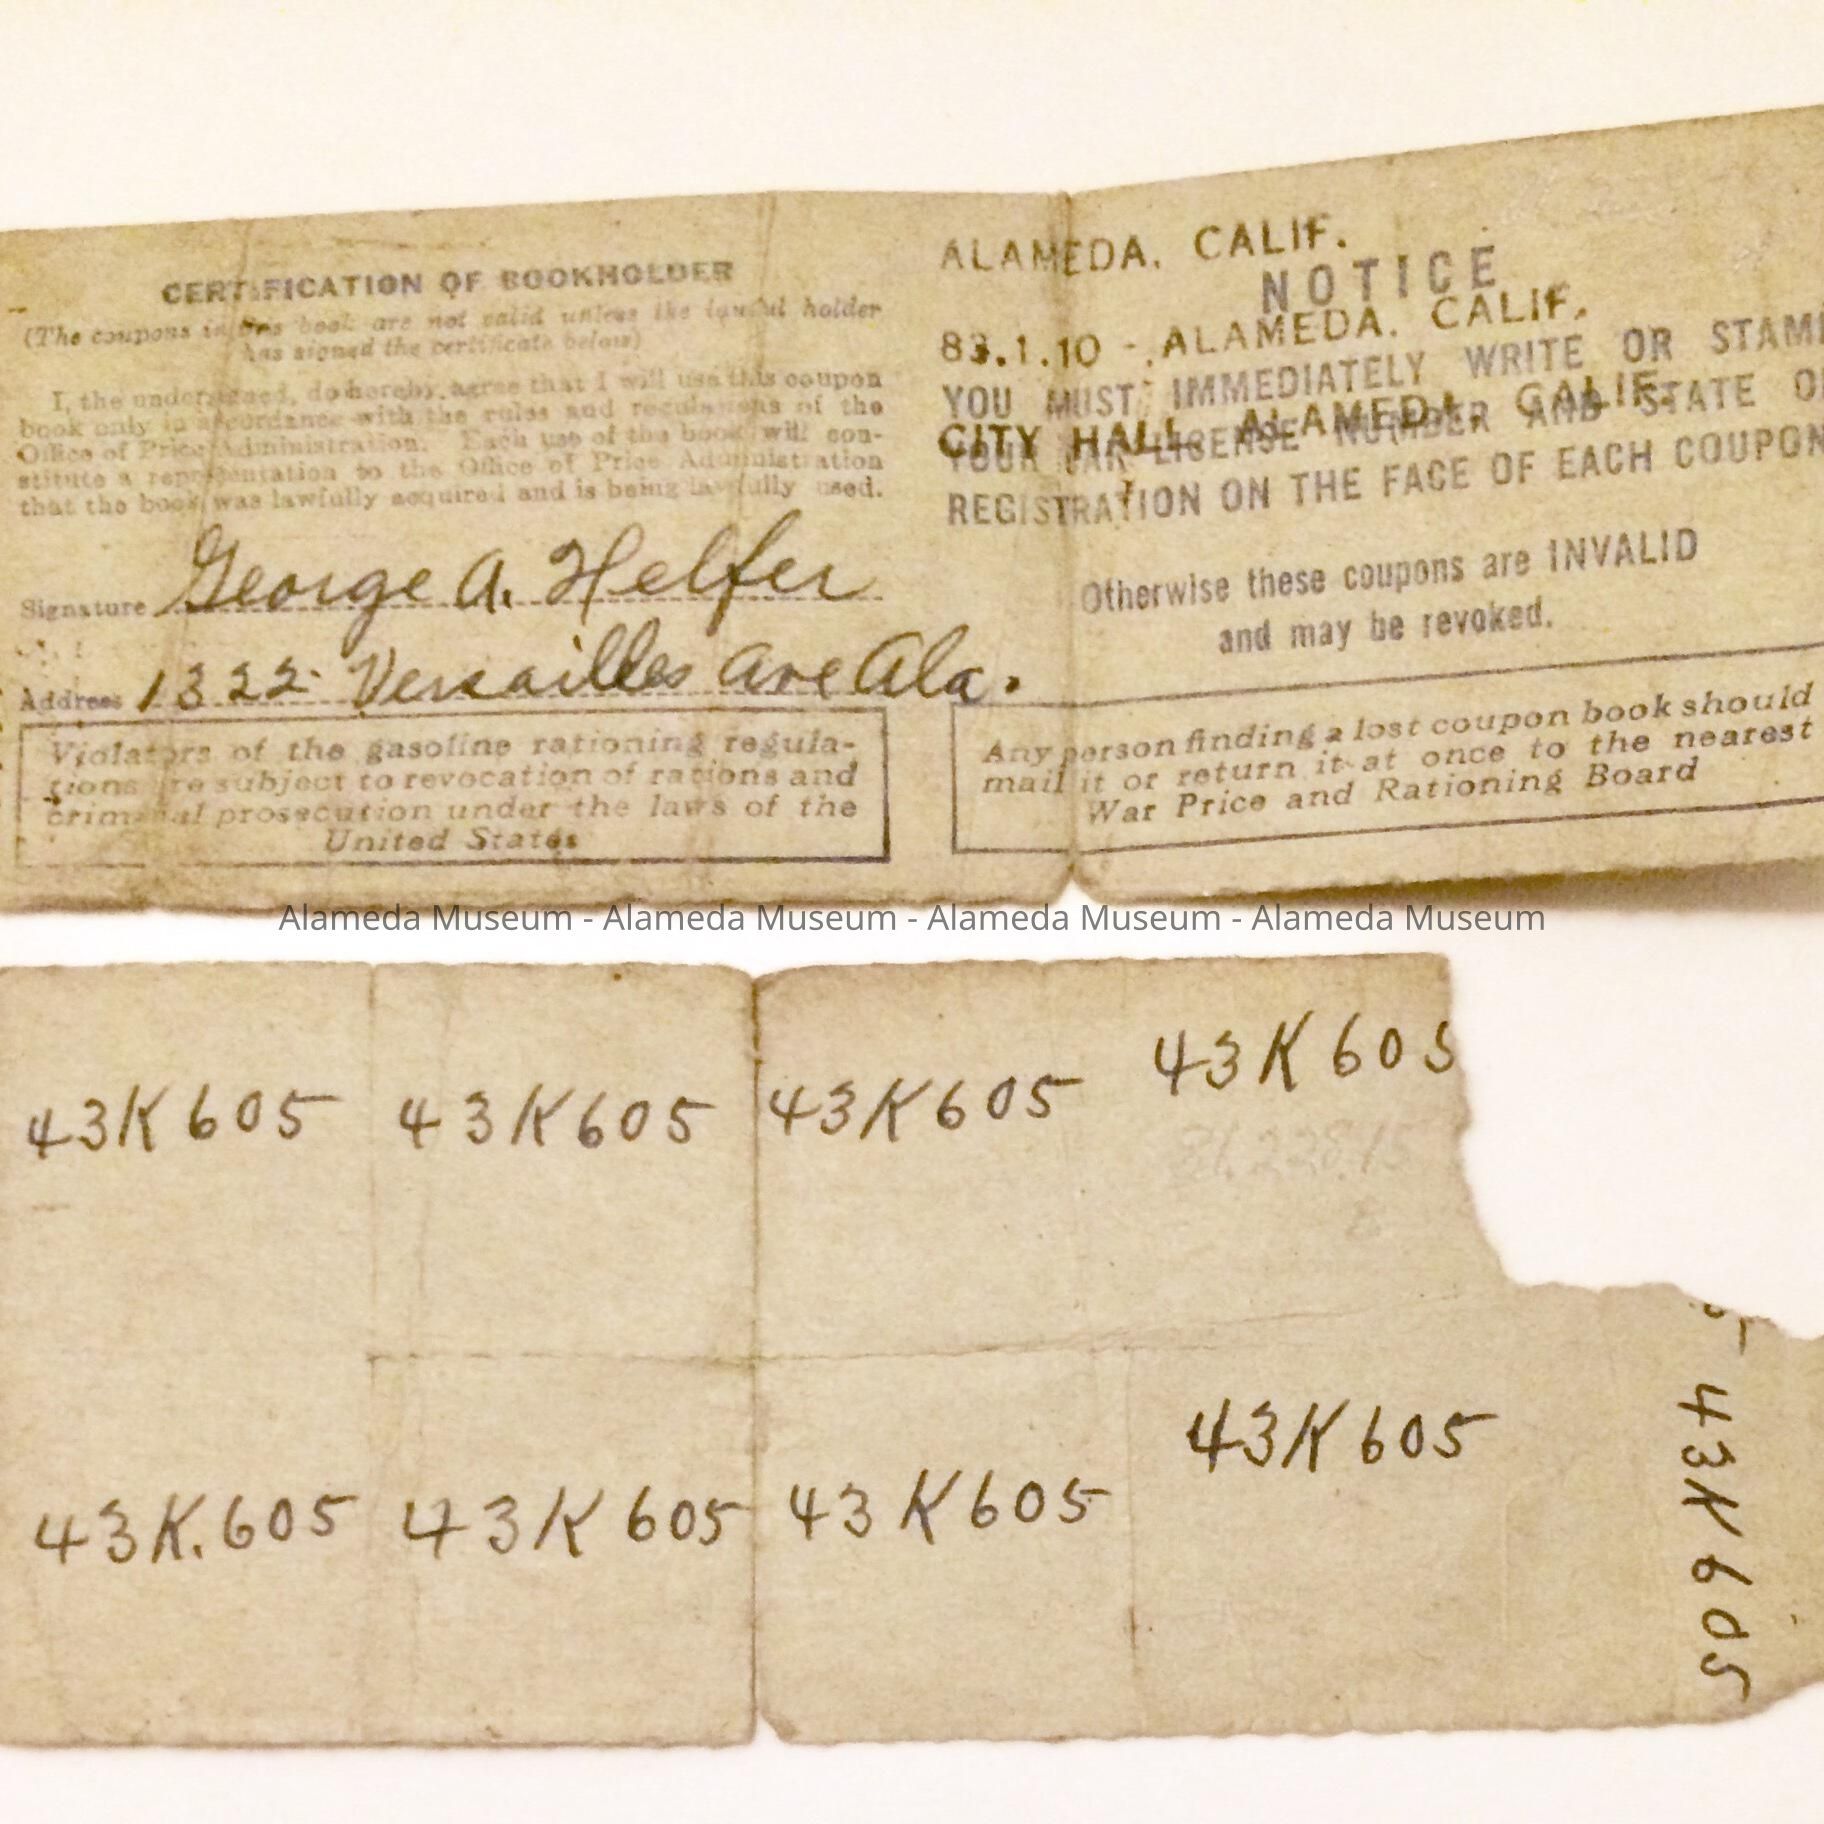 CERTIFICATION OF BOOKHOLDER
(The coupons in this book are not valid unless the lawful holder
has signed the certificate below)
I, the undersigned, do hereby agree that I will use this coupon
book only in accordance with the rules and regulations of the
Office of Price Administration. Each use of the book will con-
stitute a representation to the Office of Price Administration
that the book was lawfully acquired and is being lawfully used.
Signature George A. Helfer
Address 1322 Versailles Ave Ala.
Violators of the gasoline rationing regula-
tions are subject to revocation of rations and
criminal prosecution under the laws of the
United States
ALAMEDA, CALIF.
NOTICE
83.1.10 - ALAMEDA, CALIF.
YOU MUST IMMEDIATELY WRITE OR STAMP
CITY HALL ALAMEDA, CALIF.
YOUR CAR LICENSE NUMBER AND STATE OF
REGISTRATION ON THE FACE OF EACH COUPON
Otherwise these coupons are INVALID
and may be revoked.
Any person finding a lost coupon book should
mail it or return it at once to the nearest
War Price and Rationing Board
Alameda Museum - Alameda Museum - Alameda Museum - Alameda Museum
43K605 43K605 43K605 43K605
43K.605 43K605 43K605 43K605
43K605